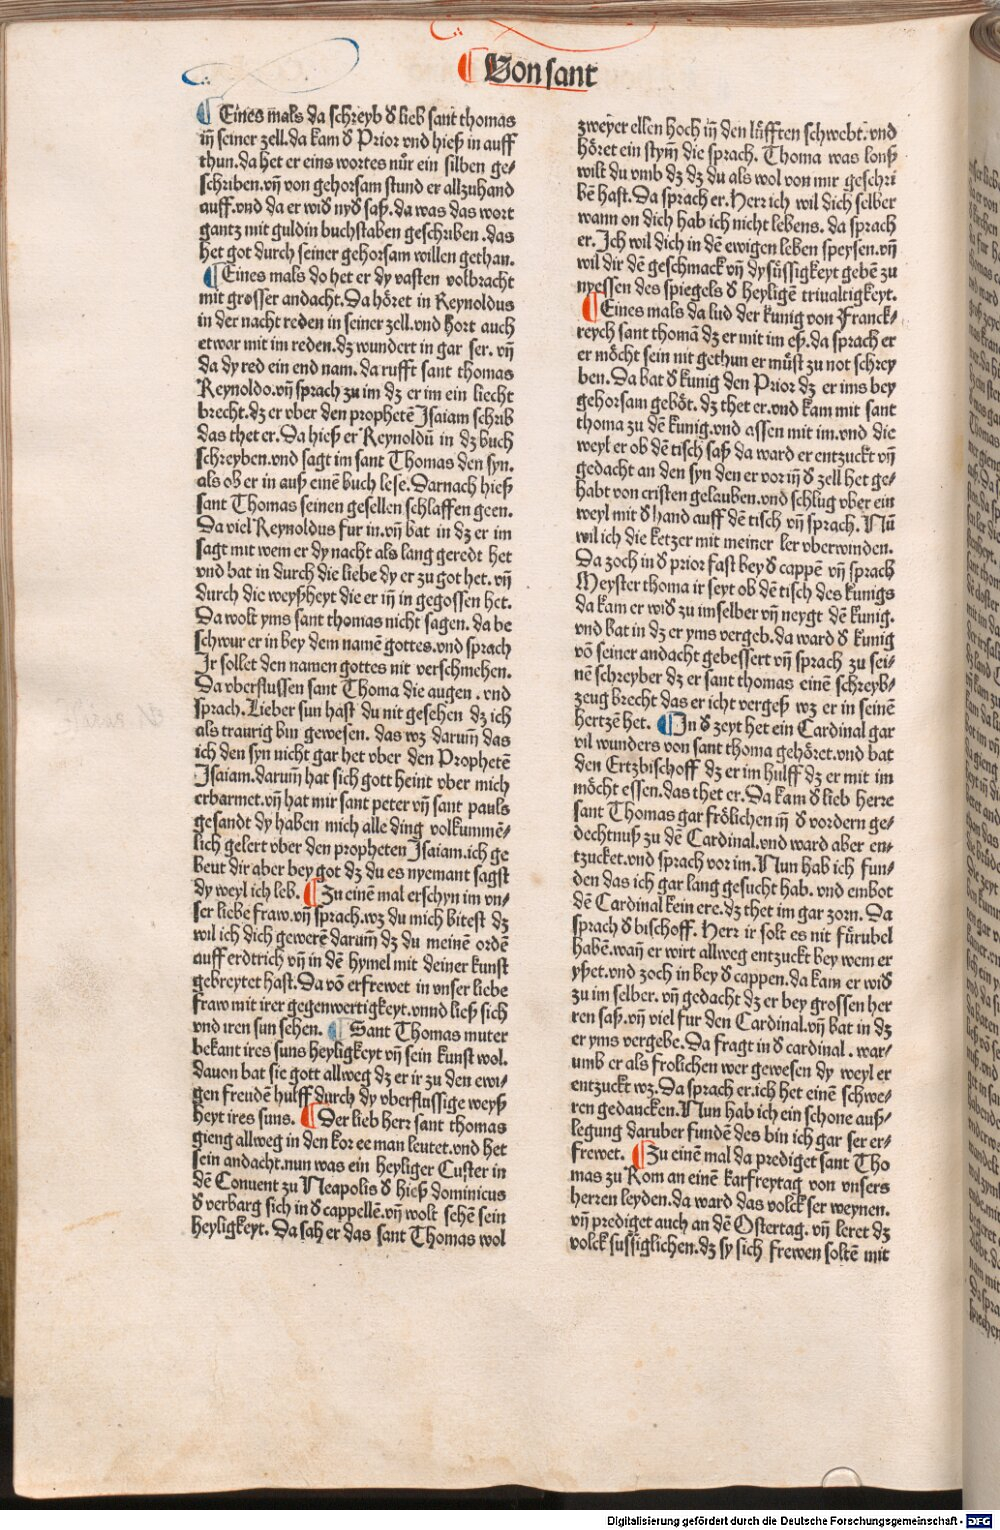 Von sant
Eines mals da schreyb d̕ lieb sant thomas
in̄ seiner zell.da kam d̕ Prior vnd hieß in auff
thun.da het er eins wortes nůr ein silben ge-
schriben.vn̄ von gehorsam stund er allzuhand
auff.vnd da er wid̕ nyd̕ saß.da was das wort
gantz mit guldin buchstaben geschriben .das
het got durch seiner gehorsam willen gethan.
Eines mals do het er dy vasten volbracht
mit grosser andacht.Da höret in Reynoldus
in der nacht reden in seiner zell.vnd hort auch
etwar mit im reden.dz wundert in gar ser. vn̄
da dy red ein end nam. da rufft sant thomas
Reynoldo.vn̄ sprach zu im dz er im ein liecht
brecht.dz er vber den prophetē Isaiam schrib
das thet er.Da hieß er Reynoldū in dz buch
schreyben.vnd sagt im sant Thomas den syn.
als ob er in auß einē buch lese.Darnach hieß
sant Thomas seinen gesellen schlaffen geen.
Da viel Reynoldus fur in.vn̄ bat in dz er im
sagt mit wem er dy nacht als lang geredt het
vnd bat in durch die liebe dy er zu got het. vn̄
durch die weyßheyt die er in̄ in gegossen het.
Da wolt yms sant thomas nicht sagen. da be
schwur er in bey dem namē gottes.vnd sprach
Ir sollet den namen gottes nit verschmehen.
Da vberflussen sant Thoma die augen . vnd
sprach.Lieber sun hast du nit gesehen dz ich
als traurig bin gewesen. das wz darum̄ das
ich den syn nicht gar het vber den Prophetē
Isaiam.darum̄ hat sich gott heint vber mich
erbarmet.vn̄ hat mir sant peter vn̄ sant pauls
gesandt dy haben mich alle ding volkummē-
lich gelert vber den propheten Isaiam.ich ge
beut dir aber bey got dz du es nyemant sagst
dy weyl ich leb. Zu einē mal erschyn im vn-
ser liebe fraw.vn̄ sprach.wz du mich bitest dz
wil ich dich gewerē darum̄ dz du meinē ordē
auff erdtrich vn̄ in dē hymel mit deiner kunst
gebreytet hast.Da vō erfrewet in vnser liebe
fraw mit irer gegenwertigkeyt.vnnd ließ sich
vnd iren sun sehen. Sant Thomas muter
bekant ires suns heyligkeyt vn̄ sein kunst wol.
dauon bat sie gott allweg dz er ir zu den ewi-
gen freudē hulff durch dy vberflussige weyß
heyt ires suns. Der lieb herr sant thomas
gieng allweg in den kor ee man leutet.vnd het
sein andacht.nun was ein heyliger Custer in
dē Conuent zu Neapolis d̕ hieß dominicus
d̕ verbarg sich in d̕ cappellē.vn̄ wolt sehē sein
heyligkeyt. Da sah er das sant Thomas wol
zweyer ellen hoch in̄ den lüfften schwebt.vnd
höret ein stym̄ die sprach. Thoma was lonß
wilt du vmb dz dz du als wol von mir geschri
bē hast. Da sprach er.Herr ich wil dich selber
wann on dich hab ich nicht lebens. da sprach
er.Ich wil dich in dē ewigen leben speysen.vn̄
wil dir dē geschmack vn̄ dy süssigkeyt gebē zu
nyessen des spiegels d̕ heyligē triualtigkeyt.
Eines mals da lud der kunig von Franck-
reych sant thomā dz er mit im eß.da sprach er
er möcht sein nit gethun er müst zu not schrey
ben. Da bat d̕ kunig den Prior dz er ims bey
gehorsam geböt. dz thet er.vnd kam mit sant
thoma zu dē kunig.vnd assen mit im.vnd die
weyl er ob dē tisch saß da ward er entzuckt vn̄
gedacht an den syn den er vor in̄ d̕ zell het ge-
habt von cristen gelauben.vnd schlug vber ein
weyl mit d̕ hand auff dē tisch vn̄ sprach. Nū
wil ich die ketzer mit meiner ler vberwinden.
Da zoch in d̕ prior fast bey d̕ cappē vn̄ sprach
Meyster thoma ir seyt ob dē tisch des kunigs
da kam er wid̕ zu im selber vn̄ neygt dē kunig.
vnd bat in dz er yms vergeb.da ward d̕ kunig
vō seiner andacht gebessert vn̄ sprach zu sei-
nē schreyber dz er sant thomas einē schreyb-
zeug brecht das er icht vergeß wz er in seinē
hertzē het. In d̕ zeyt het ein Cardinal gar
vil wunders von sant thoma gehöret.vnd bat
den Ertzbischoff dz er im hulff dz er mit im
möcht essen.das thet er.Da kam d̕ lieb herre
sant Thomas gar frölichen in̄ d̕ vordern ge-
dechtnuß zu dē Cardinal.vnd ward aber en-
tzucket.vnd sprach vor im.Nun hab ich fun-
den das ich gar lang gesucht hab. vnd embot
dē Cardinal kein ere.dz thet im gar zorn. Da
sprach d̕ bischoff. Herr ir solt es nit fürubel
habē.wan̄ er wirt allweg entzuckt bey wem er
yßet.vnd zoch in bey d̕ cappen.da kam er wid̕
zu im selber. vn̄ gedacht dz er bey grossen her
ren saß.vn̄ viel fur den Cardinal.vn̄ bat in dz
er yms vergebe.Da fragt in d̕ cardinal . war-
umb er als frolichen wer gewesen dy weyl er
entzuckt wz.Da sprach er.ich het einē schwe-
ren gedancken.Nun hab ich ein schone auß-
legung daruber fundē des bin ich gar ser er-
frewet. Zu einē mal da prediget sant Tho
mas zu Rom an einē karfreytag von vnsers
herren leyden.da ward das volck ser weynen.
vn̄ prediget auch an dē Ostertag. vn̄ leret dz
volck sussiglichen.dz sy sich frewen soltē mit
Digitalisierung gefördert durch die Deutsche Forschungsgemeinschaft - DFG